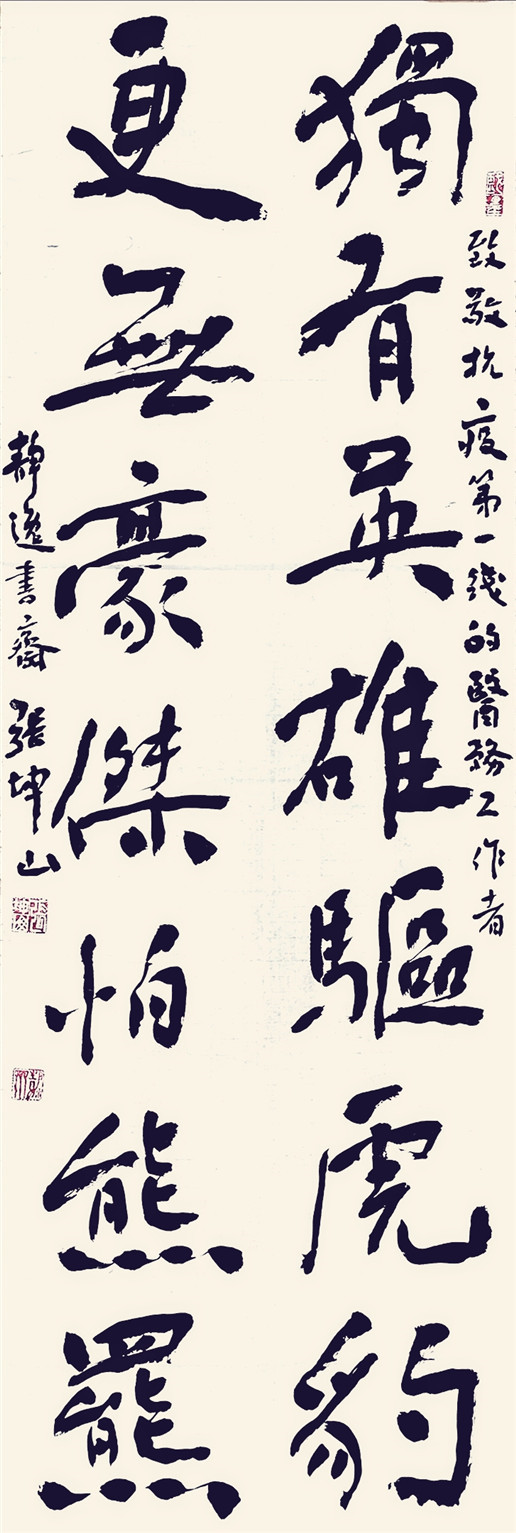 致敬抗疫第一线的醫務工作者
獨有英雄驅虎豹
更無豪傑怕熊羆
靜逸書齋 張坤山